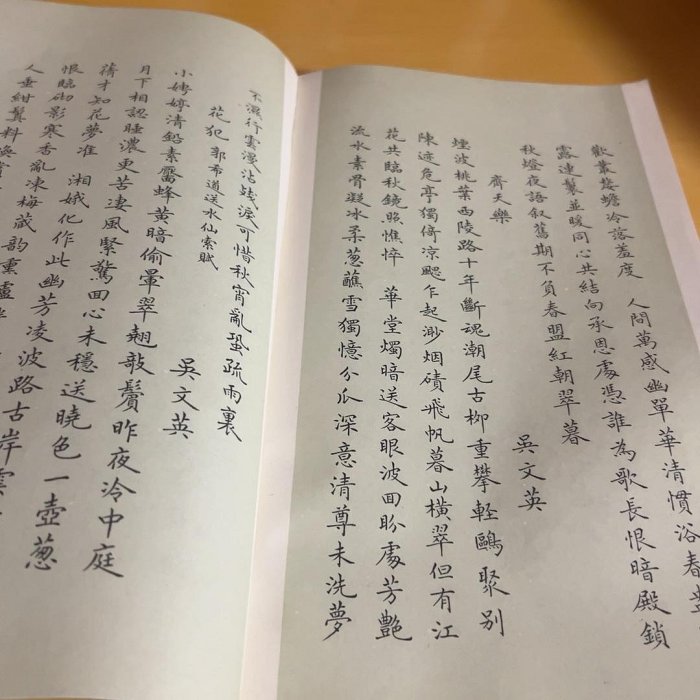 歡叢嫠蟾冷落羞度 人間萬感幽單華清慣浴春
露連鬟並暖同心共結向承恩處憑誰為歌長恨暗殿鎖
秋燈夜語叙舊期不負春盟紅朝翠暮
齊天樂 吳文英
煙波桃葉西陵路十年斷魂潮尾古柳重攀輕鷗聚別
陳迹危亭獨倚涼颸乍起渺烟磧飛帆暮山橫翠但有江
花共臨秋鏡照憔悴 華堂燭暗送客眼波回盼處芳艷
流水素骨凝冰柔葱蘸雪獨憶分瓜深意清尊未洗夢
不濕行雲漫沾殘淚可惜秋宵亂蛩疏雨裏
花犯 郭希道送水仙索賦 吳文英
小娉婷清鉛素靨蜂黃暗偷暈翠翹敧鬢昨夜冷中庭
月下相認睡濃更苦凄風緊驚回心未穩送曉色一壺葱
蒨才知花夢准 湘娥化作此幽芳凌波路古岸雲
恨臨砌影寒香亂凍梅藏韵熏爐
人垂紺鬢料喚